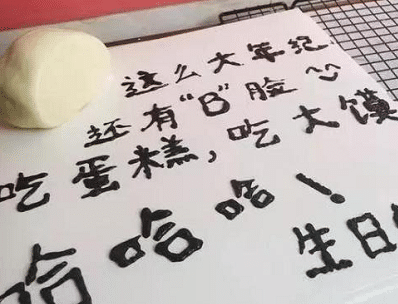 这么大年纪
还有“B”脸
吃蛋糕,吃大馍
哈哈哈!
生日